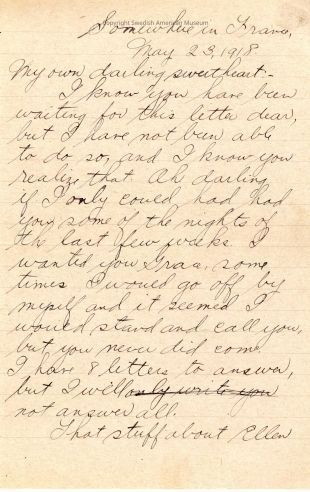 Copyright Swedish American Museum
Somewhere in France,
May 23, 1918
My own darling sweetheart:-
I know you have been
waiting for this letter dear,
but I have not been able
to do so, and I know you
realize that. Oh darling
if I only could had had
you some of the nights of
the last few weeks I
wanted you Grace, some
times I would go off by
myself and it seemed I
would stand and call you,
but you never did come.
I have 8 letters to answer,
but I will only write you
not answer all.
That stuff about Ellen